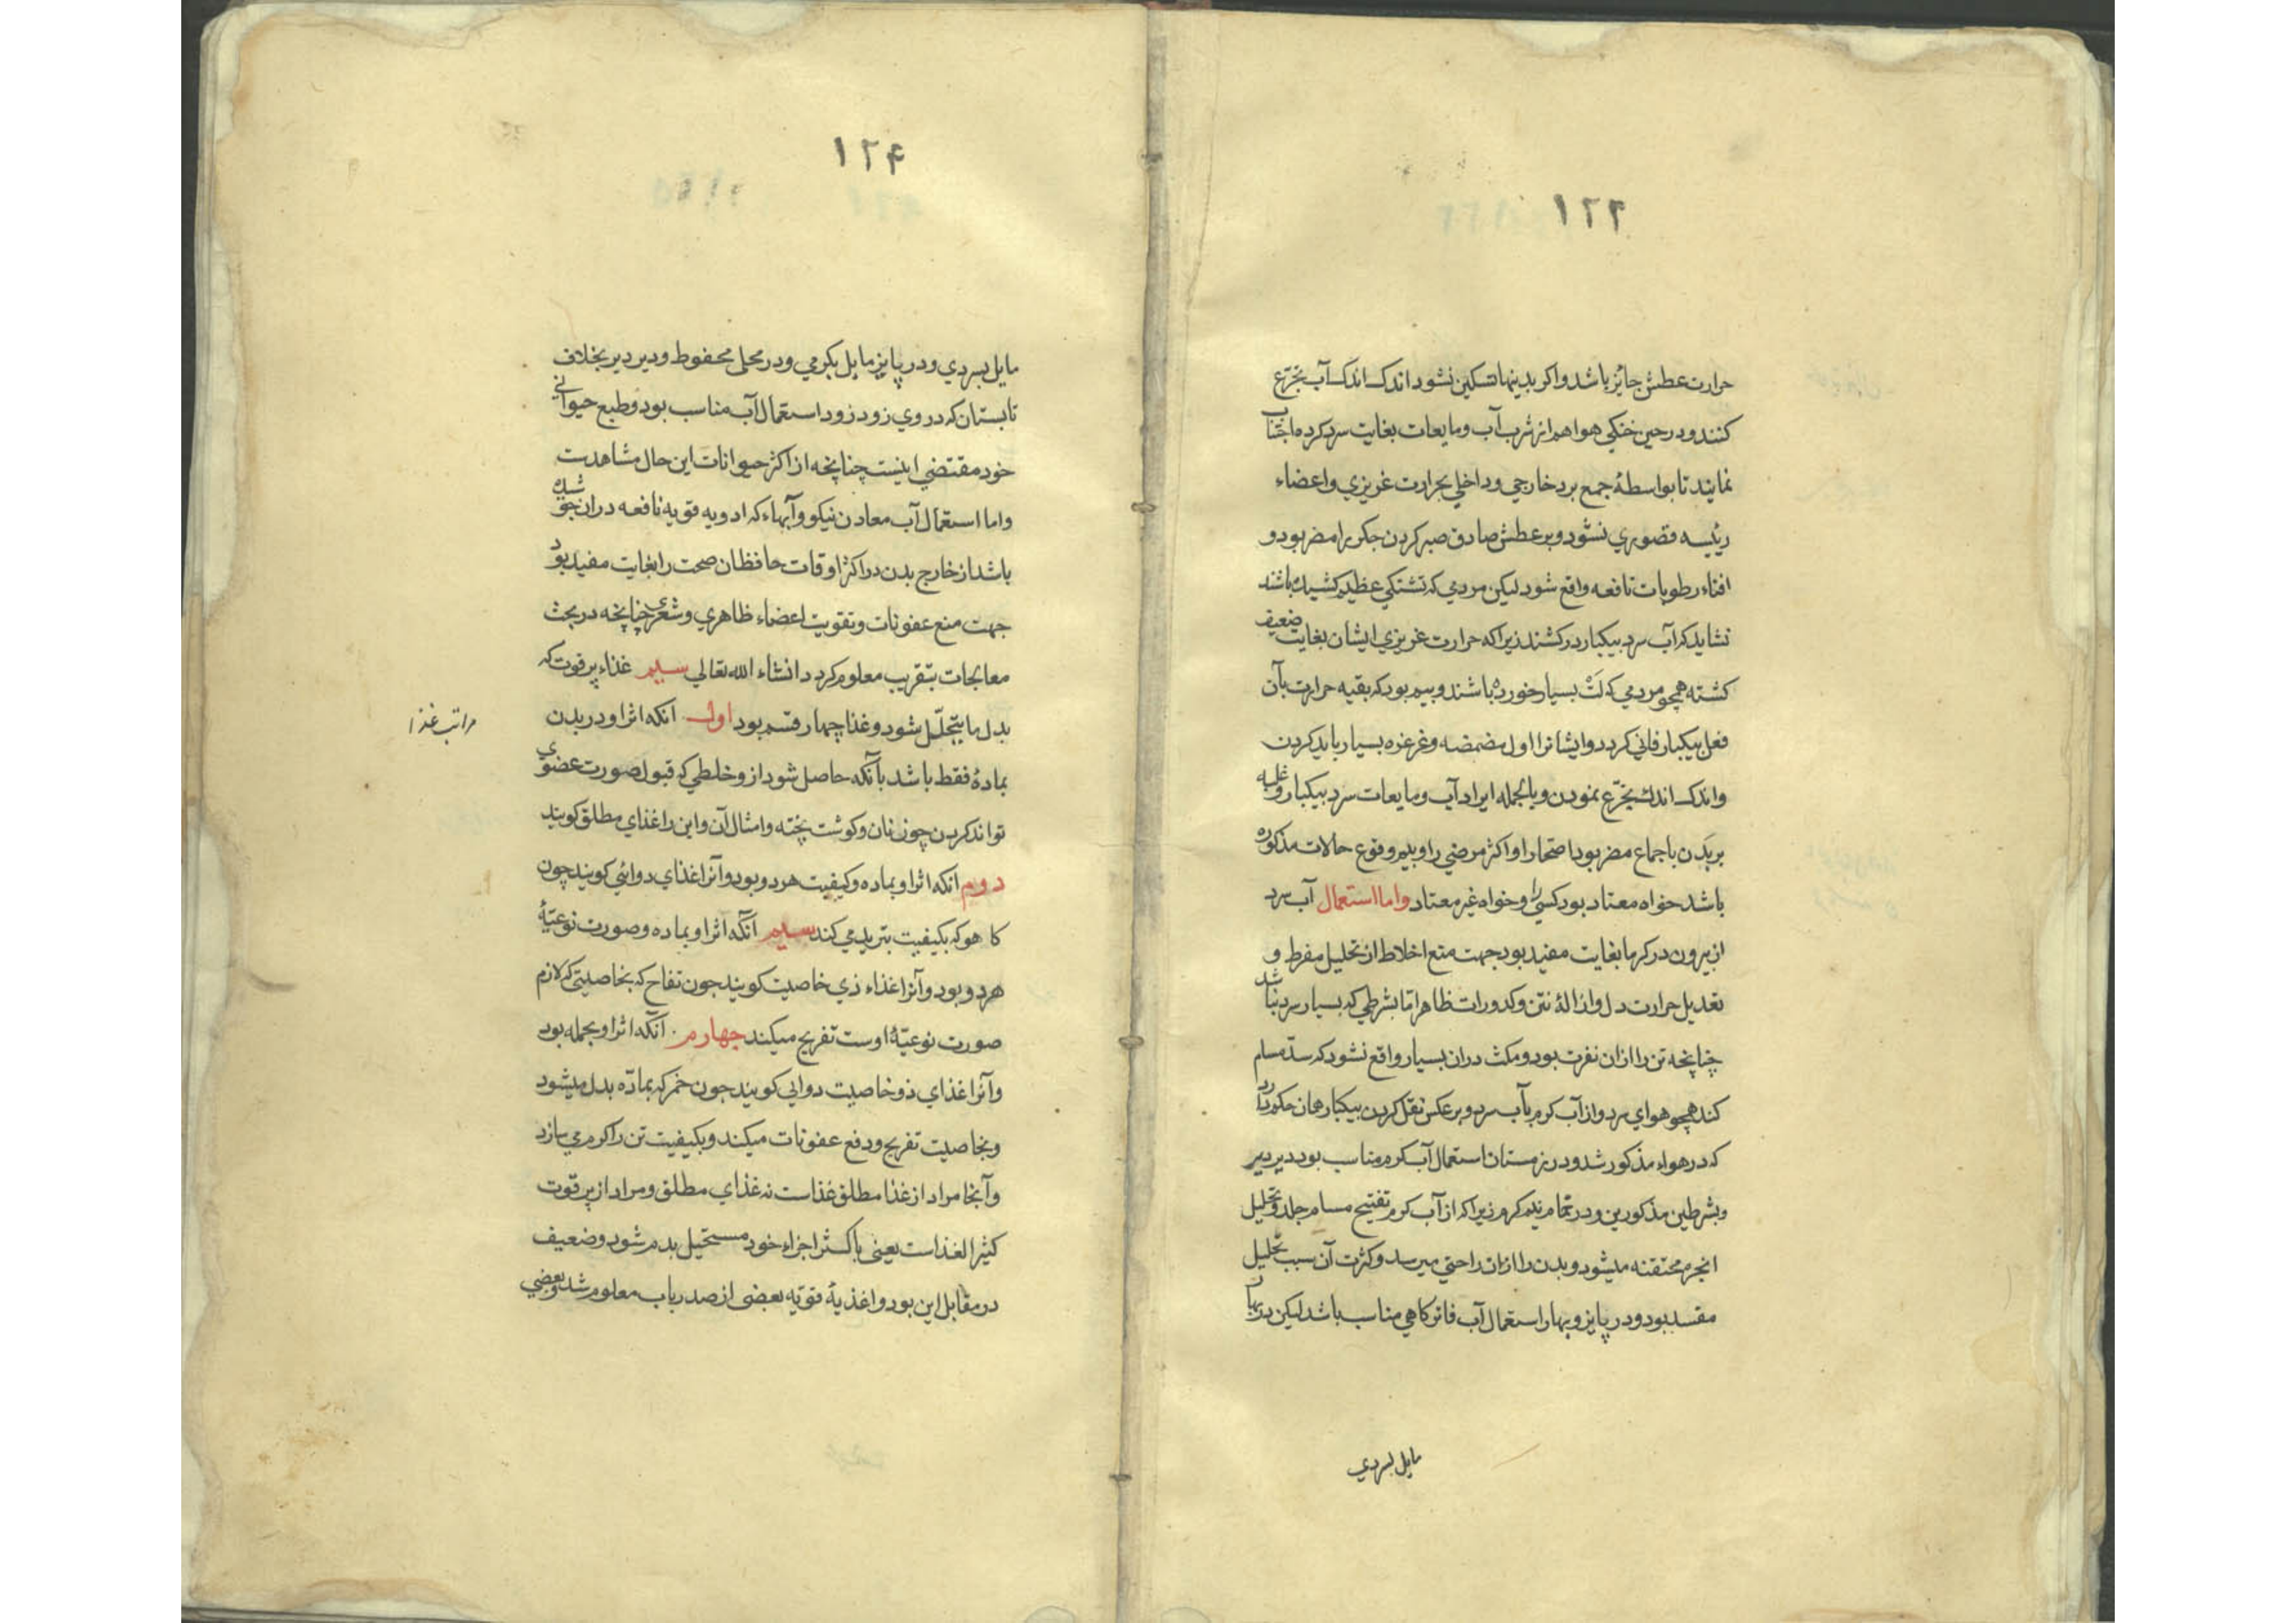 ۱۲۳
حرارت عطش جائز باشد واكر بدينها تسكين نشود اندك اندك آب تجرّع
كنند ودر حين خنكي هوا هم از شرب آب ومايعات بغايت سرد كرده اجتناب
نمايند تا بواسطهٔ جمع برد خارجي وداخلي بحرارت غريزي واعضاء
رئيسه قصوري نشود وبر عطش صادق صبر كردن جكر را مضر بود و
افناء رطوبات نافعه واقع شود ليكن مردمي كه تشنكي عظيم كشيده باشند
نشايد كه آب سرد بيكبار در كشند زيراكه حرارت غريزي ايشان بغايت ضعيف
كشته همچو مردمي كه لَتْ بسيار خورده باشند وبيم بود كه بقيه حرارت بآن
فعل بيكبار فاني كردد وايشانرا اول مضمضه وغرغره بسيار بايد كردن
واندك اندك تجرّع نمودن وبالجمله ايراد آب ومايعات سرد بيكبار وغلبه
بر بدن باجماع مضر بود اصحّا را واكثر مرضي را وبيم وقوع حالات مذكوره
باشد خواه معتاد بود كسي را وخواه غير معتاد واما استعمال آب سرد
از بيرون در كرما بغايت مفيد بود جهت منع اخلاط از تحليل مفرط و
تعديل حرارت دل وازالهٔ نتن وكدورات ظاهر اما بشرطي كه بسيار سرد نباشد
چنانچه تن را ازان نفرت بود ومكث دران بسيار واقع نشود كه سدّ مسام
كند همچو هواي سرد واز آب كرم بآب سرد وبر عكس نقل كردن بيكبار همان حكم دارد
كه در هواء مذكور شد ودر زمستان استعمال آب كرم مناسب بود دير دير
وبشرطين مذكورين ودر حمّام نيم كرم زيراكه از آب كرم تفتيح مسام جلد وتحليل
ابخرهٔ محتقنه ميشود وبدن را ازان راحتي ميرسد وكثرت آن سبب تحليل
مفسد بود ودر پايز وبهار استعمال آب فاتر كاهي مناسب باشد ليكن در بهار
مايل بسردي
۱۲۴
مايل بسردي ودر پايز مايل بكرمي ودر محلي محفوظ ودير دير بخلاف
تابستان كه در وي زود زود استعمال آب مناسب بود وطبع حيواني
خود مقتضي اينست چنانچه از اكثر حيوانات اين حال مشاهدست
واما استعمال آب معادن نيكو وآبهاء كه ادويه قويه نافعه دران جوشيده
باشد از خارج بدن در اكثر اوقات حافظان صحت را بغايت مفيد بود
جهت منع عفونات وتقويت اعضاء ظاهري وشعري چنانچه در بحث
معالجات بتقريب معلوم كردد انشاء الله تعالي سيم غذاء پر قوت كه
بدل ما يتحلّل شود وغذا چهار قسم بود اول آنكه اثر او در بدن
مراتب غذا
بمادهٔ فقط باشد بآنكه حاصل شود ازو خلطي كه قبول صورت عضوي
تواند كردن چون نان وكوشت پخته وامثال آن واين را غذاي مطلق كويند
دوم آنكه اثر او بماده وكيفيت هر دو بود وآنرا غذاي دوائي كويند چون
كاهو كه بكيفيت تبريد مي كند سيم آنكه اثر او بماده وصورت نوعيّهٔ
هر دو بود وآنرا غذاء ذي خاصيت كويند جون تفاح كه بخاصيتي كه لازم
صورت نوعيّهٔ اوست تفريح ميكند جهارم آنكه اثر او بجمله بود
وآنرا غذاي ذو خاصيت دوايي كويند جون خمر كه بمادّه بدل ميشود
وبخاصيت تفريح ودفع عفونات ميكند وبكيفيت تن را كرم مي سازد
وآنجا مراد از غذا مطلق غذاست نه غذاي مطلق ومراد از پر قوت
كثير الغذاست يعني باكثر اجزاء خود مستحيل بدم شود وضعيف
در مقابل اين بود واغذيهٔ قويه بعضي از صدر باب معلوم شد وبعضي